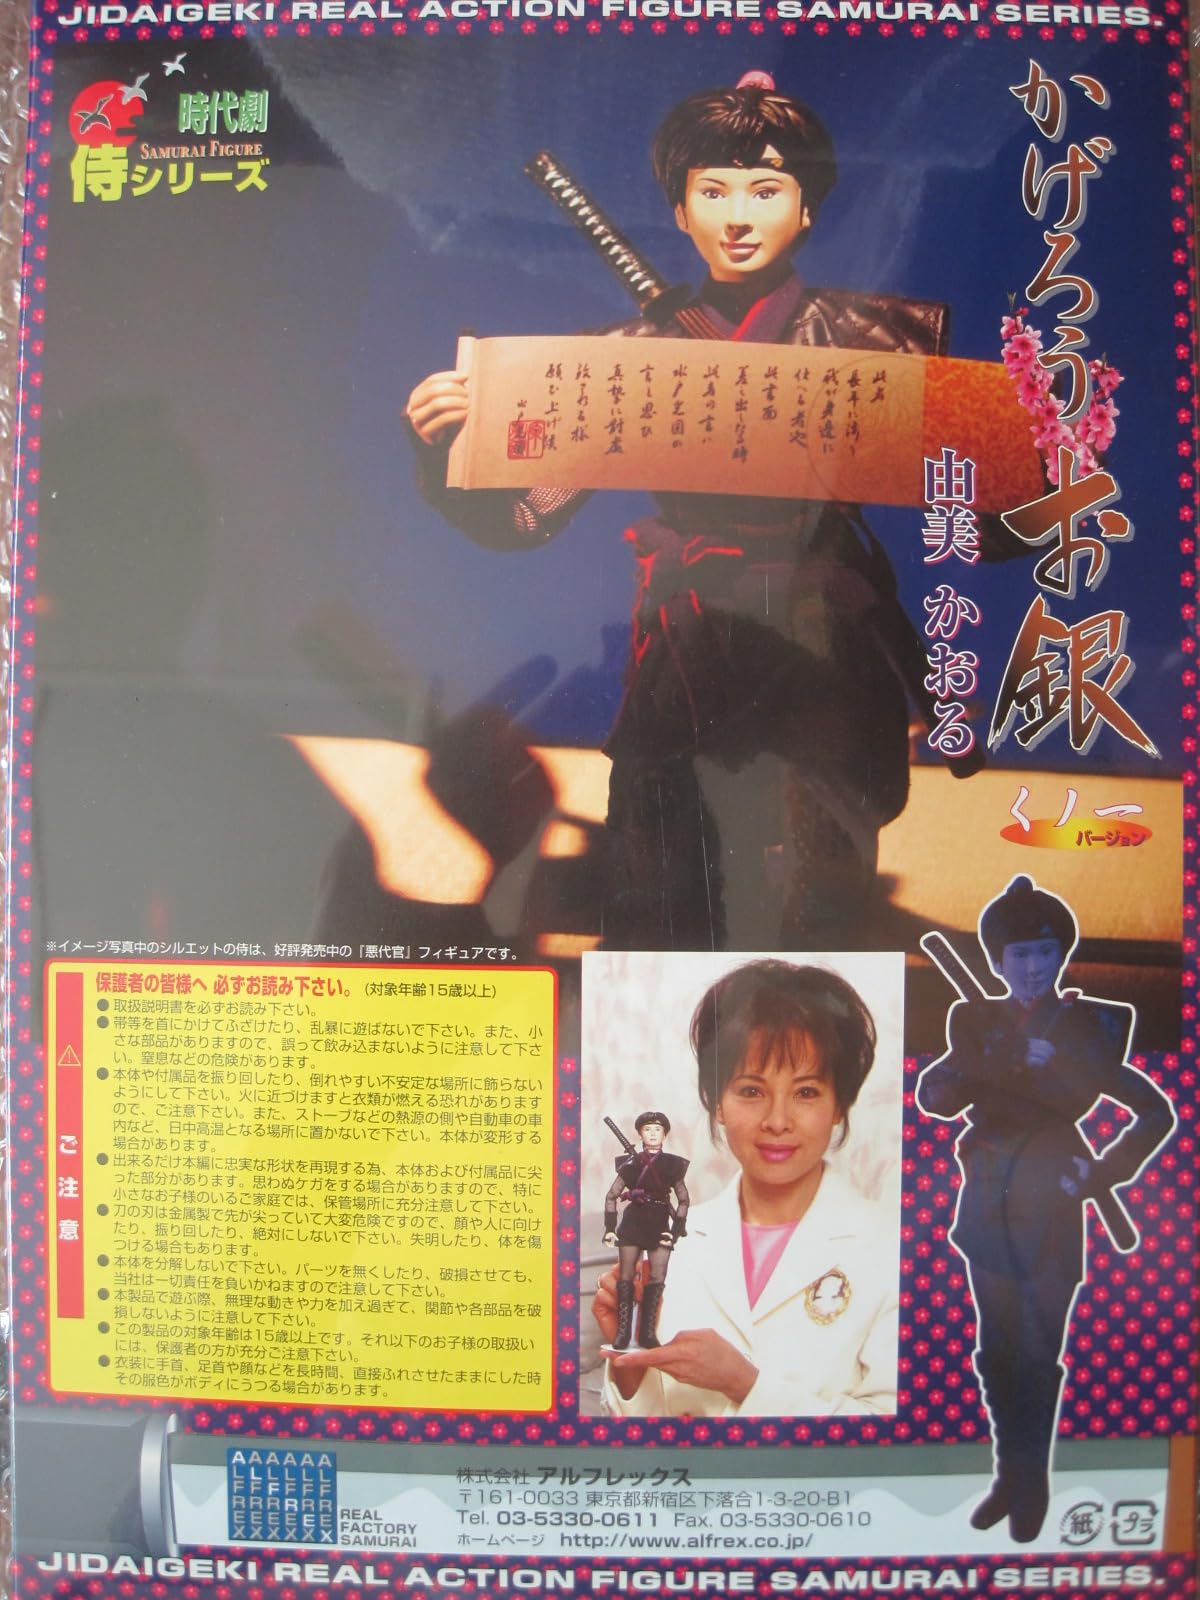 JIDAIGEKI REAL ACTION FIGURE SAMURAI SERIES.
時代劇
SAMURAI FIGURE
侍シリーズ
かげろうお銀
由美 かおる
くノ一
バージョン
此者
長年に渡り
我が身邊に
仕へる者也
此書面
差し出したる時
此者の言い
水戸光圀の
言と思ひ
真摯に対處
致さるる様
願い上げ候
※イメージ写真中のシルエットの侍は、好評発売中の『悪代官』フィギュアです。
ご注意
保護者の皆様へ 必ずお読み下さい。(対象年齢15歳以上)
●取扱説明書を必ずお読み下さい。
●帯等を首にかけてふざけたり、乱暴に遊ばないで下さい。また、小
さな部品がありますので、誤って飲み込まないように注意して下さ
い。窒息などの危険があります。
●本体や付属品を振り回したり、倒れやすい不安定な場所に飾らない
ようにして下さい。火に近づけますと衣類が燃える恐れがあります
ので、ご注意下さい。また、ストーブなどの熱源の側や自動車の車
内など、日中高温となる場所に置かないで下さい。本体が変形する
場合があります。
●出来るだけ本編に忠実な形状を再現する為、本体および付属品に尖
った部分があります。思わぬケガをする場合がありますので、特に
小さなお子様のいるご家庭では、保管場所に充分注意して下さい。
●刀の刃は金属製で先が尖っていて大変危険ですので、顔や人に向け
たり、振り回したり、絶対にしないで下さい。失明したり、体を傷
つける場合もあります。
●本体を分解しないで下さい。パーツを無くしたり、破損させても、
当社は一切責任を負いかねますので注意して下さい。
●本製品で遊ぶ際、無理な動きや力を加え過ぎて、関節や各部品を破
損しないように注意して下さい。
●この製品の対象年齢は15歳以上です。それ以下のお子様の取扱い
には、保護者の方が充分ご注意下さい。
●衣装に手首、足首や顔などを長時間、直接ふれさせたままにした時
その服色がボディにうつる場合があります。
ALFREX
REAL
FACTORY
SAMURAI
株式会社 アルフレックス
〒161-0033 東京都新宿区下落合1-3-20-B1
Tel. 03-5330-0611 Fax. 03-5330-0610
ホームページ http://www.alfrex.co.jp/
紙
プラ
JIDAIGEKI REAL ACTION FIGURE SAMURAI SERIES.